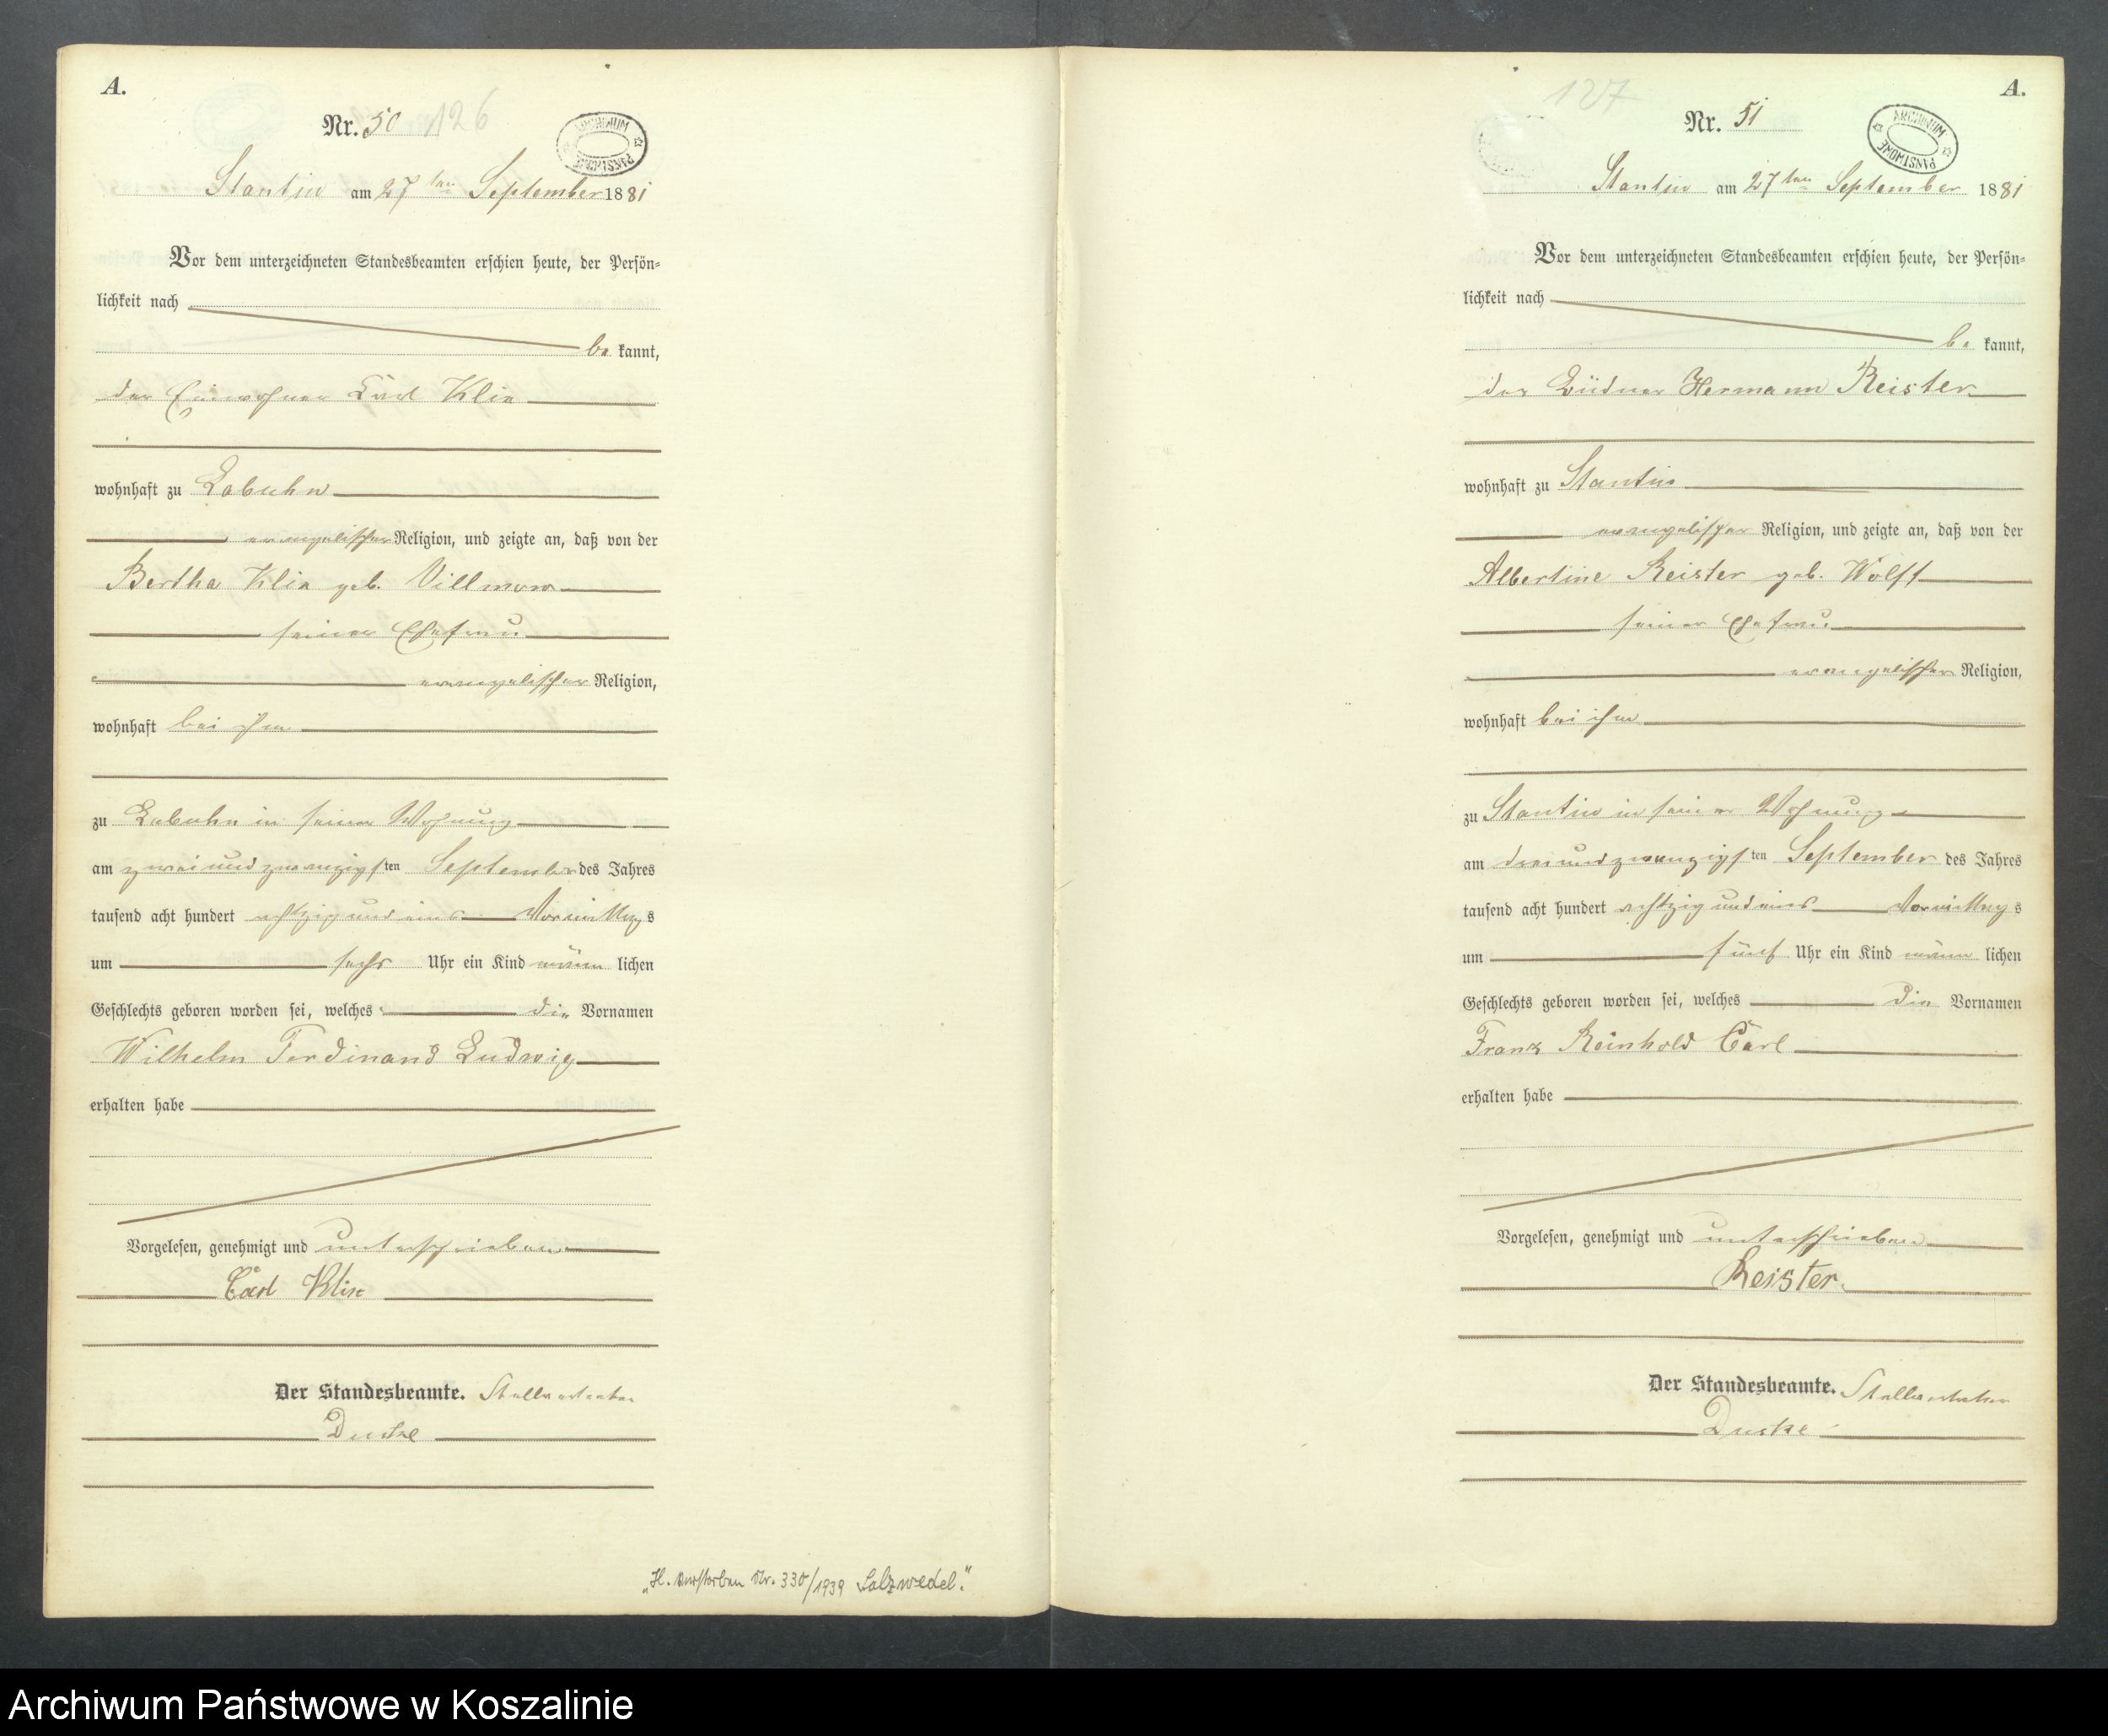 A.
Nr. 50 126
ARCHIWUM PAŃSTWOWE
Stantin am 27ten September 1881
Vor dem unterzeichneten Standesbeamten erschien heute, der Persön-
lichkeit nach
be kannt,
der Einwohner Carl Klie
wohnhaft zu Labuhn
evangelischer Religion, und zeigte an, daß von der
Bertha Klie geb. Villmow
seiner Ehefrau
evangelischer Religion,
wohnhaft bei ihm
zu Labuhn in seiner Wohnung
am zweiundzwanzigsten September des Jahres
tausend acht hundert achtzig und eins Vormittags
um sechs Uhr ein Kind männlichen
Geschlechts geboren worden sei, welches die Vornamen
Wilhelm Ferdinand Ludwig
erhalten habe
Vorgelesen, genehmigt und unterschrieben
Carl Klie
Der Standesbeamte. Stellvertreter
„H. verstorben Nr. 330/1939 Salzwedel.“
A.
127
Nr. 51
ARCHIWUM PAŃSTWOWE
Stantin am 27ten September 1881
Vor dem unterzeichneten Standesbeamten erschien heute, der Persön-
lichkeit nach
be kannt,
der Büdner Hermann Reister
wohnhaft zu Stantin
evangelischer Religion, und zeigte an, daß von der
Albertine Reister geb. Wolff
seiner Ehefrau
evangelischer Religion,
wohnhaft bei ihm
zu Stantin in seiner Wohnung
am dreiundzwanzigsten September des Jahres
tausend acht hundert achtzig und eins Vormittags
um fünf Uhr ein Kind männlichen
Geschlechts geboren worden sei, welches die Vornamen
Franz Reinhold Carl
erhalten habe
Vorgelesen, genehmigt und unterschrieben
Reister
Der Standesbeamte. Stellvertreter
Archiwum Państwowe w Koszalinie